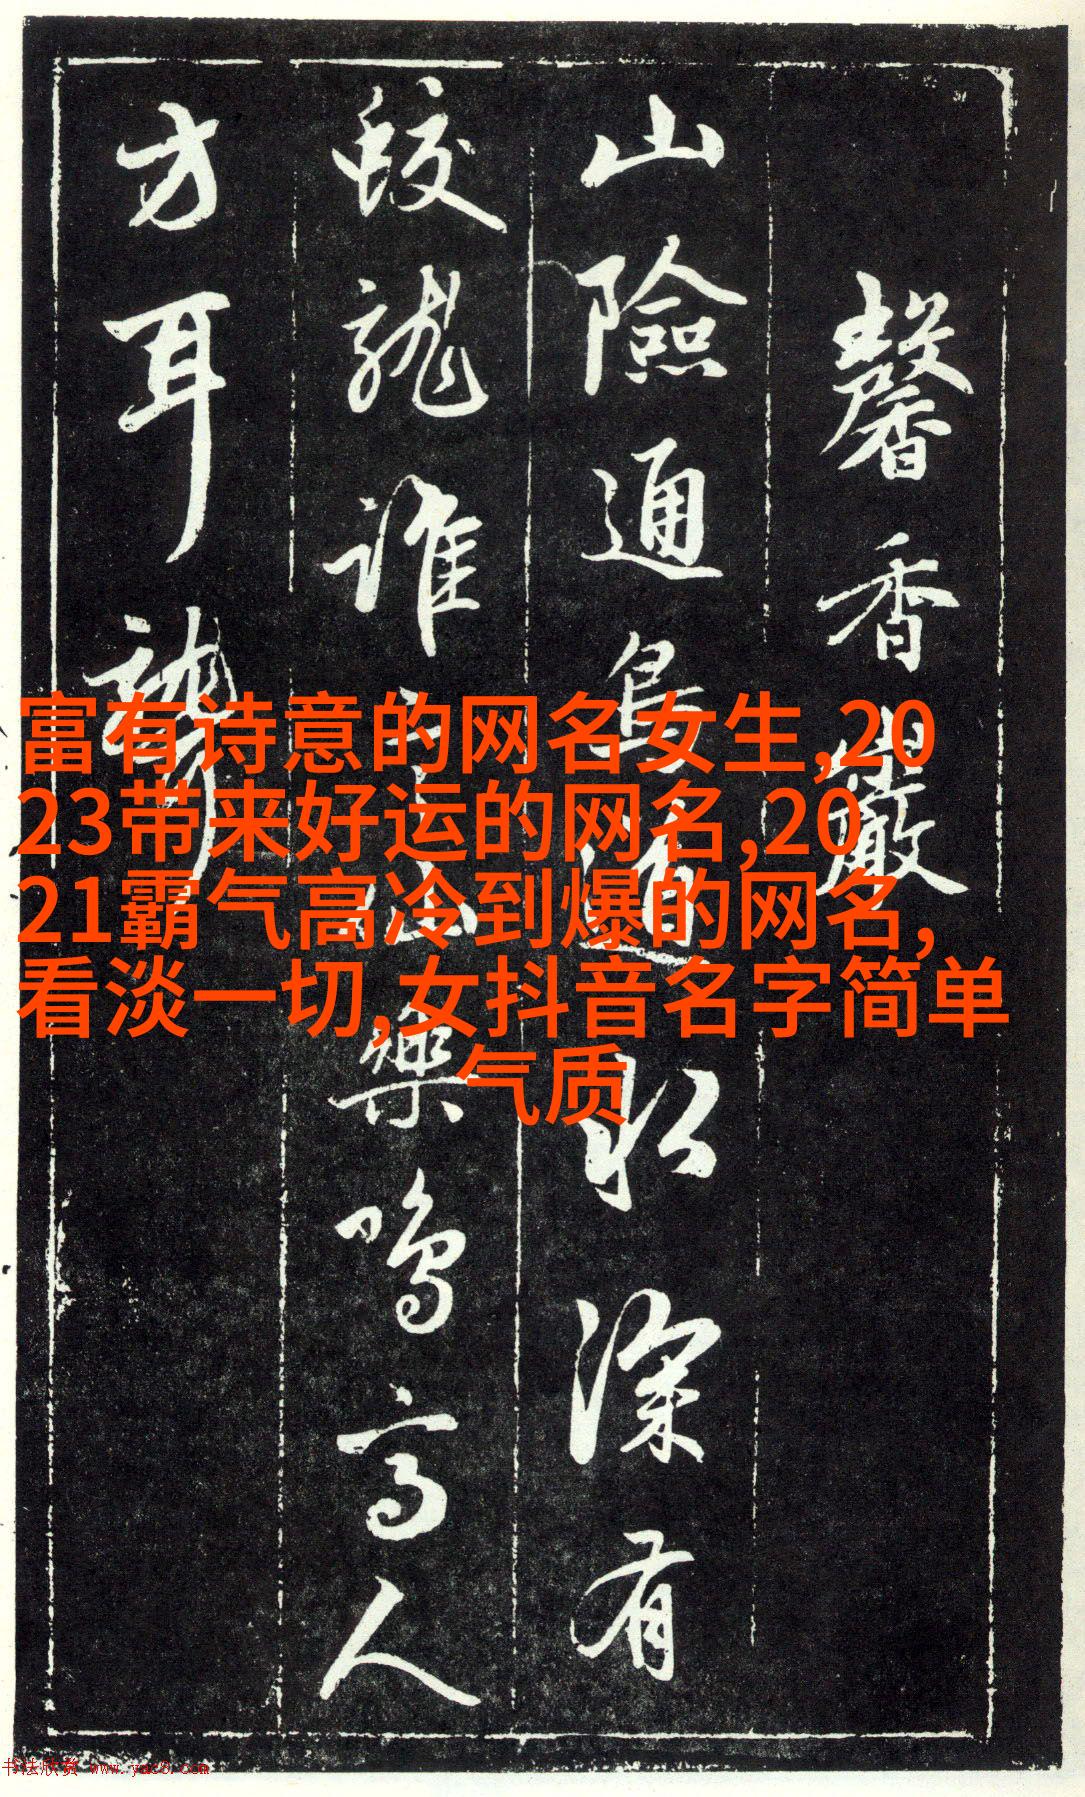 馨香巖
山險通鳥道水深有
蛟龍誰
樂鳴高人
方耳
富有诗意的网名女生,20
23带来好运的网名,20
21霸气高冷到爆的网名,
看淡一切,女抖音名字简单
气质
书法欣赏 www.yac8.com